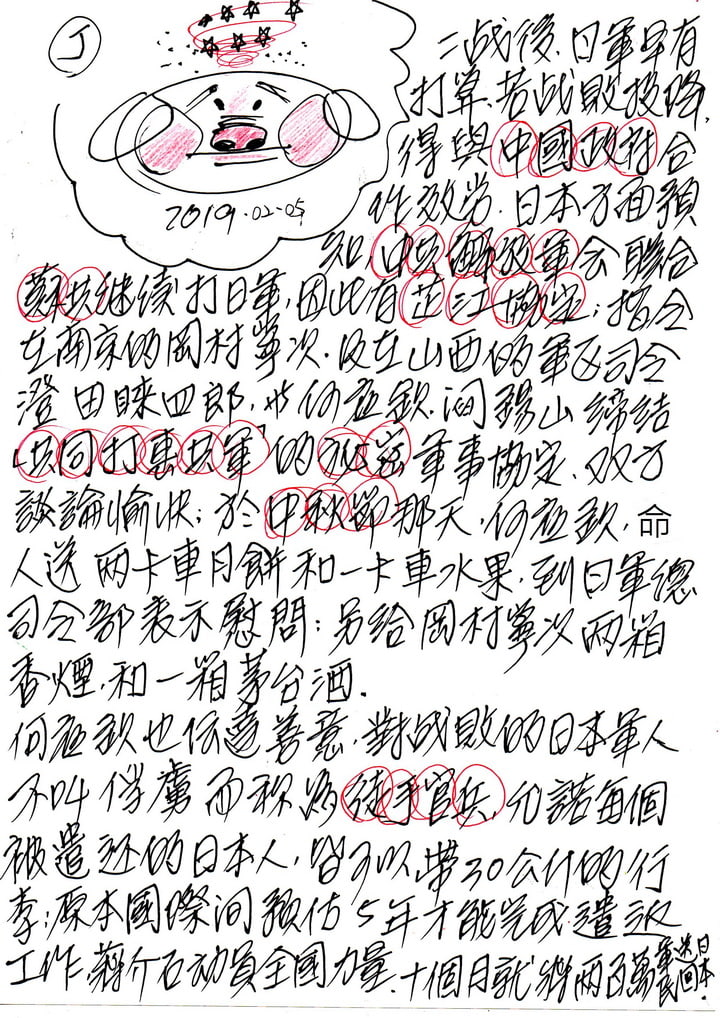 J
2019.02-05
二战後,日軍早有
打算,若战敗投降,
得與中國政府合
作效劳.日本方面預
知,中共解放軍会聯合
蘇共继续打日軍,因此有芷江協定;指令
在南京的岡村寧次.及在山西的軍区司令
澄田睐四郎,與何应欽.阎錫山締结
「共同打击共軍」的秘密軍事協定,双方
談論愉快;於中秋節那天,何应欽,命
人送两卡車月餅和一卡車水果,到日軍總
司令部表示慰問;另给岡村寧次两箱
香煙,和一箱茅台酒.
何应欽也传達善意,對战敗的日本軍人
不叫俘虜而称為徒手官兵,允諾每個
被遣返的日本人,皆可以帶30公斤的行
李;原本國際间预估5年才能完成遣返
工作,蔣介石动員全國力量.十個月就將两百萬軍民送回日本.